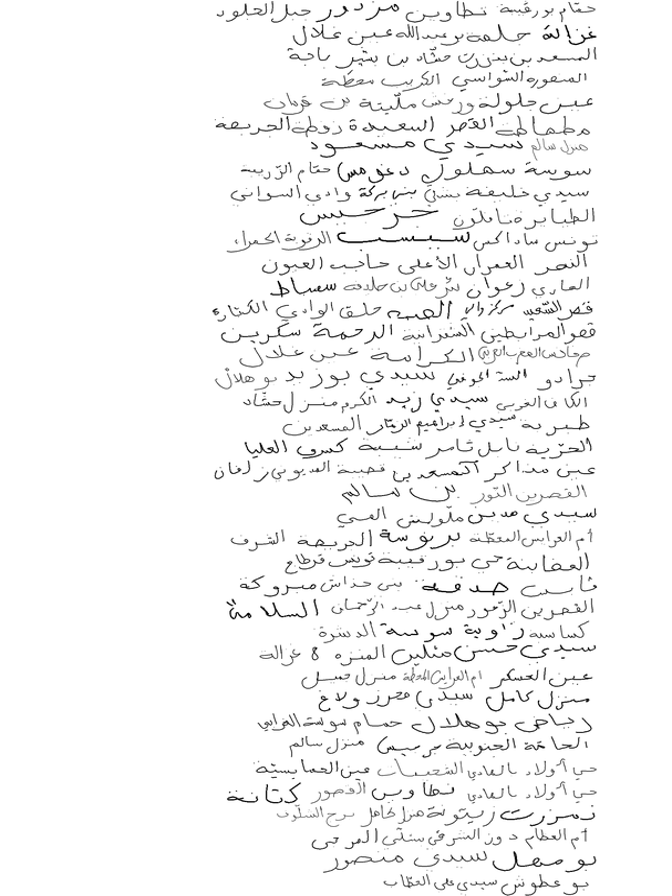 حمّام بورقيبة تطاوين مزدور جبل الجلود
غزالة جلمة بر عبد الله عين غلال
المسعدين بنزرت حشّاد بن بشير باجة
المنصورة الشواشي الكريب معطة
عين جلولة ورغش ملّيتة بن قربان
مطماطة القصر السعيدة زوطة الجريصة
منزل سالم سيدي مسعود
سوسة سهلول دغومس حمّام الزّريبة
سيدي خليفة بشلي بني بركة وادي السواني
الطبابرة تمالّرن جرجيس
تونس ساداكس سبيسب الزنوبة الحمراء
النصر العمران الأعلى حاجب العيون
الهادي زغوان بئر علي بن خليفة سمباط
قصر السّعيد مركز والي الصيد حلق الوادي الكتّار
قصر المرابطين الشعرانية الرحمة سكرين
الكرامة عين غلال
جرادو السند الحوفي سيدي بوزيد بوهلال
الكاف الغربي سيدي زيد الكرم منزل حشّاد
طبربة سيدي إبراهيم الزهّار المسعدين
الحرّية نابل ثامر شبيبة كسرى العليا
عين مذاكر المسعدين قصيبة المديوني زلفان
القصرين النّور بن سالم
سيدي مدين ملّولش الفي
أم العرايس المعطّة بريوسة الجريصة الشرف
العقابنة حي بورقيبة تونس قرطاج
قابس صدقة بني خداش مبروكة
القصرين الزّهور منزل عبد الرّحمان السلامة
كساسبة زاوية سوسة الدشرة
سيدي حسن متلين المنزه 8 غزالة
عين العسكر أم العرايس المحطّة منزل جميل
منزل كامل سيدي محرز ولاغ
رياض بوهلال حمام سوسة الغرابي
الحامّة الجنوبية برجيس منزل سالم
حي أولاد بالهادي الشعيبات عين الحمايسيّة
حي أولاد بالهادي تطاوين القصور كتانة
نمزرت زيتونة منزل كامل برج السلّوف
أم العظام دوز الشرقي ستلي المرجي
بومهل سيدي منصور
بوعطوش سيدي علي الحطّاب